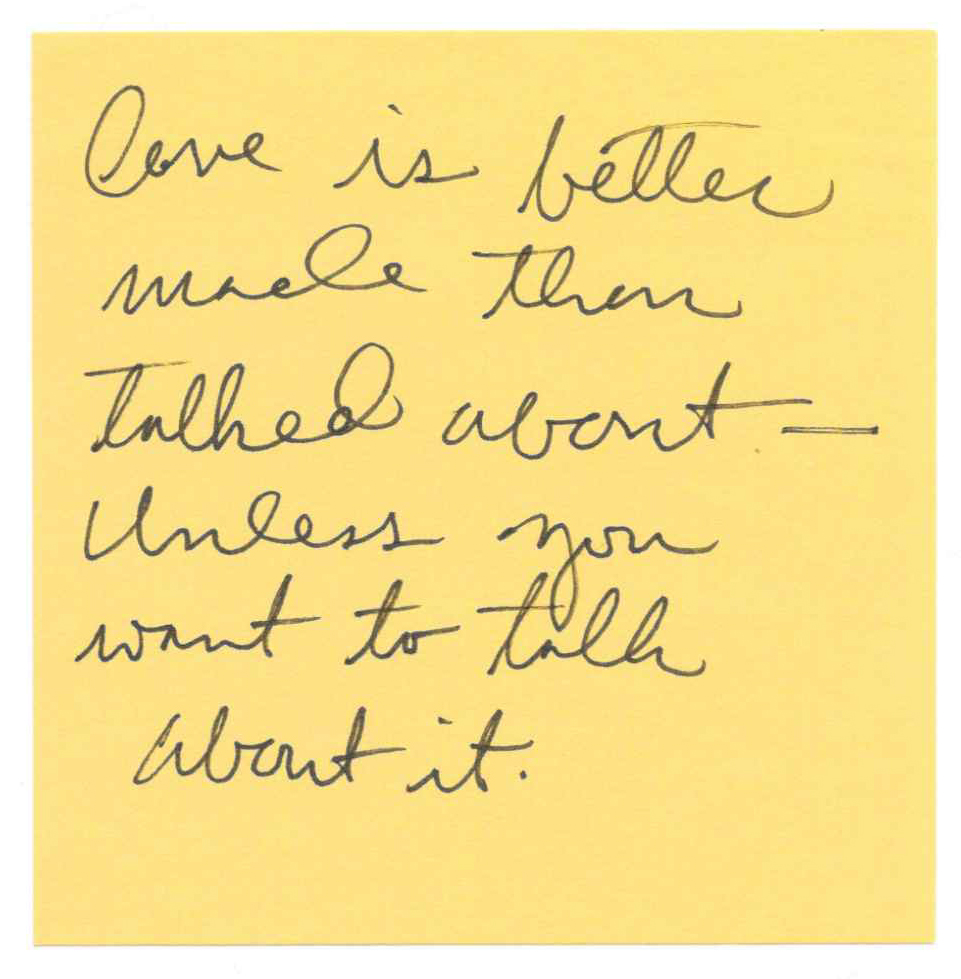 Love is better
made than
talked about —
Unless you
want to talk
about it.